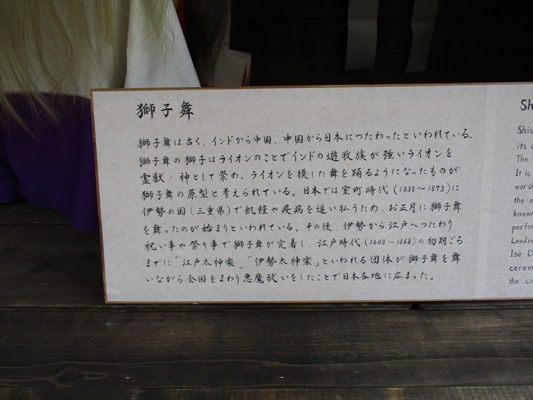 獅子舞
獅子舞は古く、インドから中国、中国から日本につたわったといわれている。
獅子舞の獅子はライオンのことでインドの遊牧族が強いライオンを
霊獣・神として崇め、ライオンを模した舞を踊るようになったものが
獅子舞の原型と考えられている。日本では室町時代(1338~1573)に
伊勢の国(三重県)で飢饉や疫病を追い払うため、お正月に獅子舞
を舞ったのが始まりといわれている。その後、伊勢から江戸へつたわり
祝い事や祭り事で獅子舞が定着し、江戸時代(1603~1868)の初期ごろ
までに「江戸太神楽」、「伊勢太神楽」といわれる団体が獅子舞を舞
いながら全国をまわり悪魔祓いをしたことで日本各地に広まった。
Sh
Shis
its
The
It is
wors
the
know
perfo
Leadin
Ise D
cerem
the co